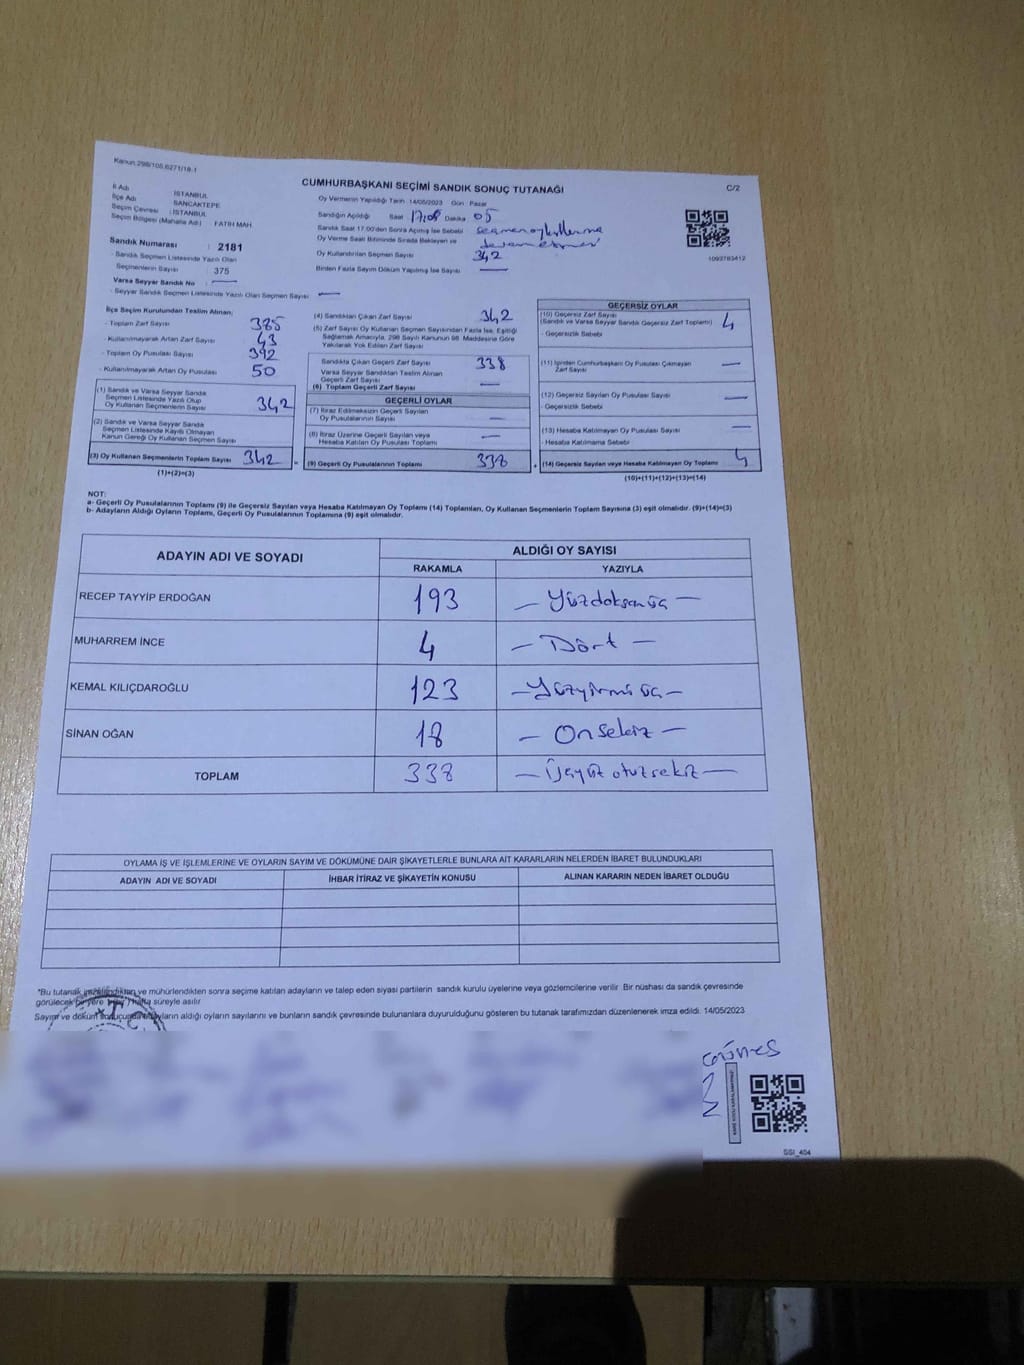 Kanun:298/105,6271/18-1
CUMHURBAŞKANI SEÇİMİ SANDIK SONUÇ TUTANAĞI
C/2
İl Adı : İSTANBUL
İlçe Adı : SANCAKTEPE
Seçim Çevresi : İSTANBUL
Seçim Bölgesi (Mahalle Adı) : FATİH MAH
Sandık Numarası : 2181
- Sandık Seçmen Listesinde Yazılı Olan
Seçmenlerin Sayısı : 375
Varsa Seyyar Sandık No —
- Seyyar Sandık Seçmen Listesinde Yazılı Olan Seçmen Sayısı —
Oy Vermenin Yapıldığı Tarih 14/05/2023 Gün Pazar
Sandığın Açıldığı Saat 17:05 Dakika 05
Sandık Saat 17.00'den Sonra Açılmış İse Sebebi
Oy Verme Saati Bitiminde Sırada Bekleyen ve
Oy Kullandırılan Seçmen Sayısı 342
Birden Fazla Sayım Döküm Yapılmış İse Sayısı —
1093783412
İlçe Seçim Kurulundan Teslim Alınan;
- Toplam Zarf Sayısı 385
- Kullanılmayarak Artan Zarf Sayısı 43
- Toplam Oy Pusulası Sayısı 392
- Kullanılmayarak Artan Oy Pusulası 50
(1) Sandık ve Varsa Seyyar Sandık
Seçmen Listesinde Yazılı Olup
Oy Kullanan Seçmenlerin Sayısı 342
(2) Sandık ve Varsa Seyyar Sandık
Seçmen Listesinde Kayıtlı Olmayan
Kanun Gereği Oy Kullanan Seçmen Sayısı
(3) Oy Kullanan Seçmenlerin Toplam Sayısı 342
(1)+(2)=(3)
(4) Sandıktan Çıkan Zarf Sayısı 342
(5) Zarf Sayısı Oy Kullanan Seçmen Sayısından Fazla İse, Eşitliği
Sağlamak Amacıyla, 298 Sayılı Kanunun 98. Maddesine Göre
Yakılarak Yok Edilen Zarf Sayısı
Sandıkta Çıkan Geçerli Zarf Sayısı 338
Varsa Seyyar Sandıktan Teslim Alınan
Geçerli Zarf Sayısı —
(6) Toplam Geçerli Zarf Sayısı
GEÇERLİ OYLAR
(7) İtiraz Edilmeksizin Geçerli Sayılan
Oy Pusulalarının Sayısı —
(8) İtiraz Üzerine Geçerli Sayılan veya
Hesaba Katılan Oy Pusulası Toplamı —
(9) Geçerli Oy Pusulalarının Toplamı 338
GEÇERSİZ OYLAR
(10) Geçersiz Zarf Sayısı
(Sandık ve Varsa Seyyar Sandık Geçersiz Zarf Toplamı) 4
- Geçersizlik Sebebi
(11) İçinden Cumhurbaşkanı Oy Pusulası Çıkmayan
Zarf Sayısı —
(12) Geçersiz Sayılan Oy Pusulası Sayısı —
- Geçersizlik Sebebi
(13) Hesaba Katılmayan Oy Pusulası Sayısı —
- Hesaba Katılmama Sebebi
(14) Geçersiz Sayılan veya Hesaba Katılmayan Oy Toplamı 4
(10)+(11)+(12)+(13)=(14)
NOT:
a- Geçerli Oy Pusulalarının Toplamı (9) ile Geçersiz Sayılan veya Hesaba Katılmayan Oy Toplamı (14) Toplamları, Oy Kullanan Seçmenlerin Toplam Sayısına (3) eşit olmalıdır. (9)+(14)=(3)
b- Adayların Aldığı Oyların Toplamı, Geçerli Oy Pusulalarının Toplamına (9) eşit olmalıdır.
ADAYIN ADI VE SOYADI
ALDIĞI OY SAYISI
RAKAMLA YAZIYLA
RECEP TAYYİP ERDOĞAN 193 — Yüzdoksanüç —
MUHARREM İNCE 4 — Dört —
KEMAL KILIÇDAROĞLU 123 — Yüzyirmiüç —
SİNAN OĞAN 18 — Onsekiz —
TOPLAM 338 — Üçyüz otuzsekiz —
OYLAMA İŞ VE İŞLEMLERİNE VE OYLARIN SAYIM VE DÖKÜMÜNE DAİR ŞİKAYETLERLE BUNLARA AİT KARARLARIN NELERDEN İBARET BULUNDUKLARI
ADAYIN ADI VE SOYADI İHBAR İTİRAZ VE ŞİKAYETİN KONUSU ALINAN KARARIN NEDEN İBARET OLDUĞU
*Bu tutanak imzalandıktan ve mühürlendikten sonra seçime katılan adayların ve talep eden siyasi partilerin sandık kurulu üyelerine veya gözlemcilerine verilir. Bir nüshası da sandık çevresinde
görülecek bir yere bir(1) hafta süreyle asılır
Sayım ve döküm sonucunda adayların aldığı oyların sayılarını ve bunların sandık çevresinde bulunanlara duyurulduğunu gösteren bu tutanak tarafımızdan düzenlenerek imza edildi. 14/05/2023
T.C.
Güneş
SSI_404